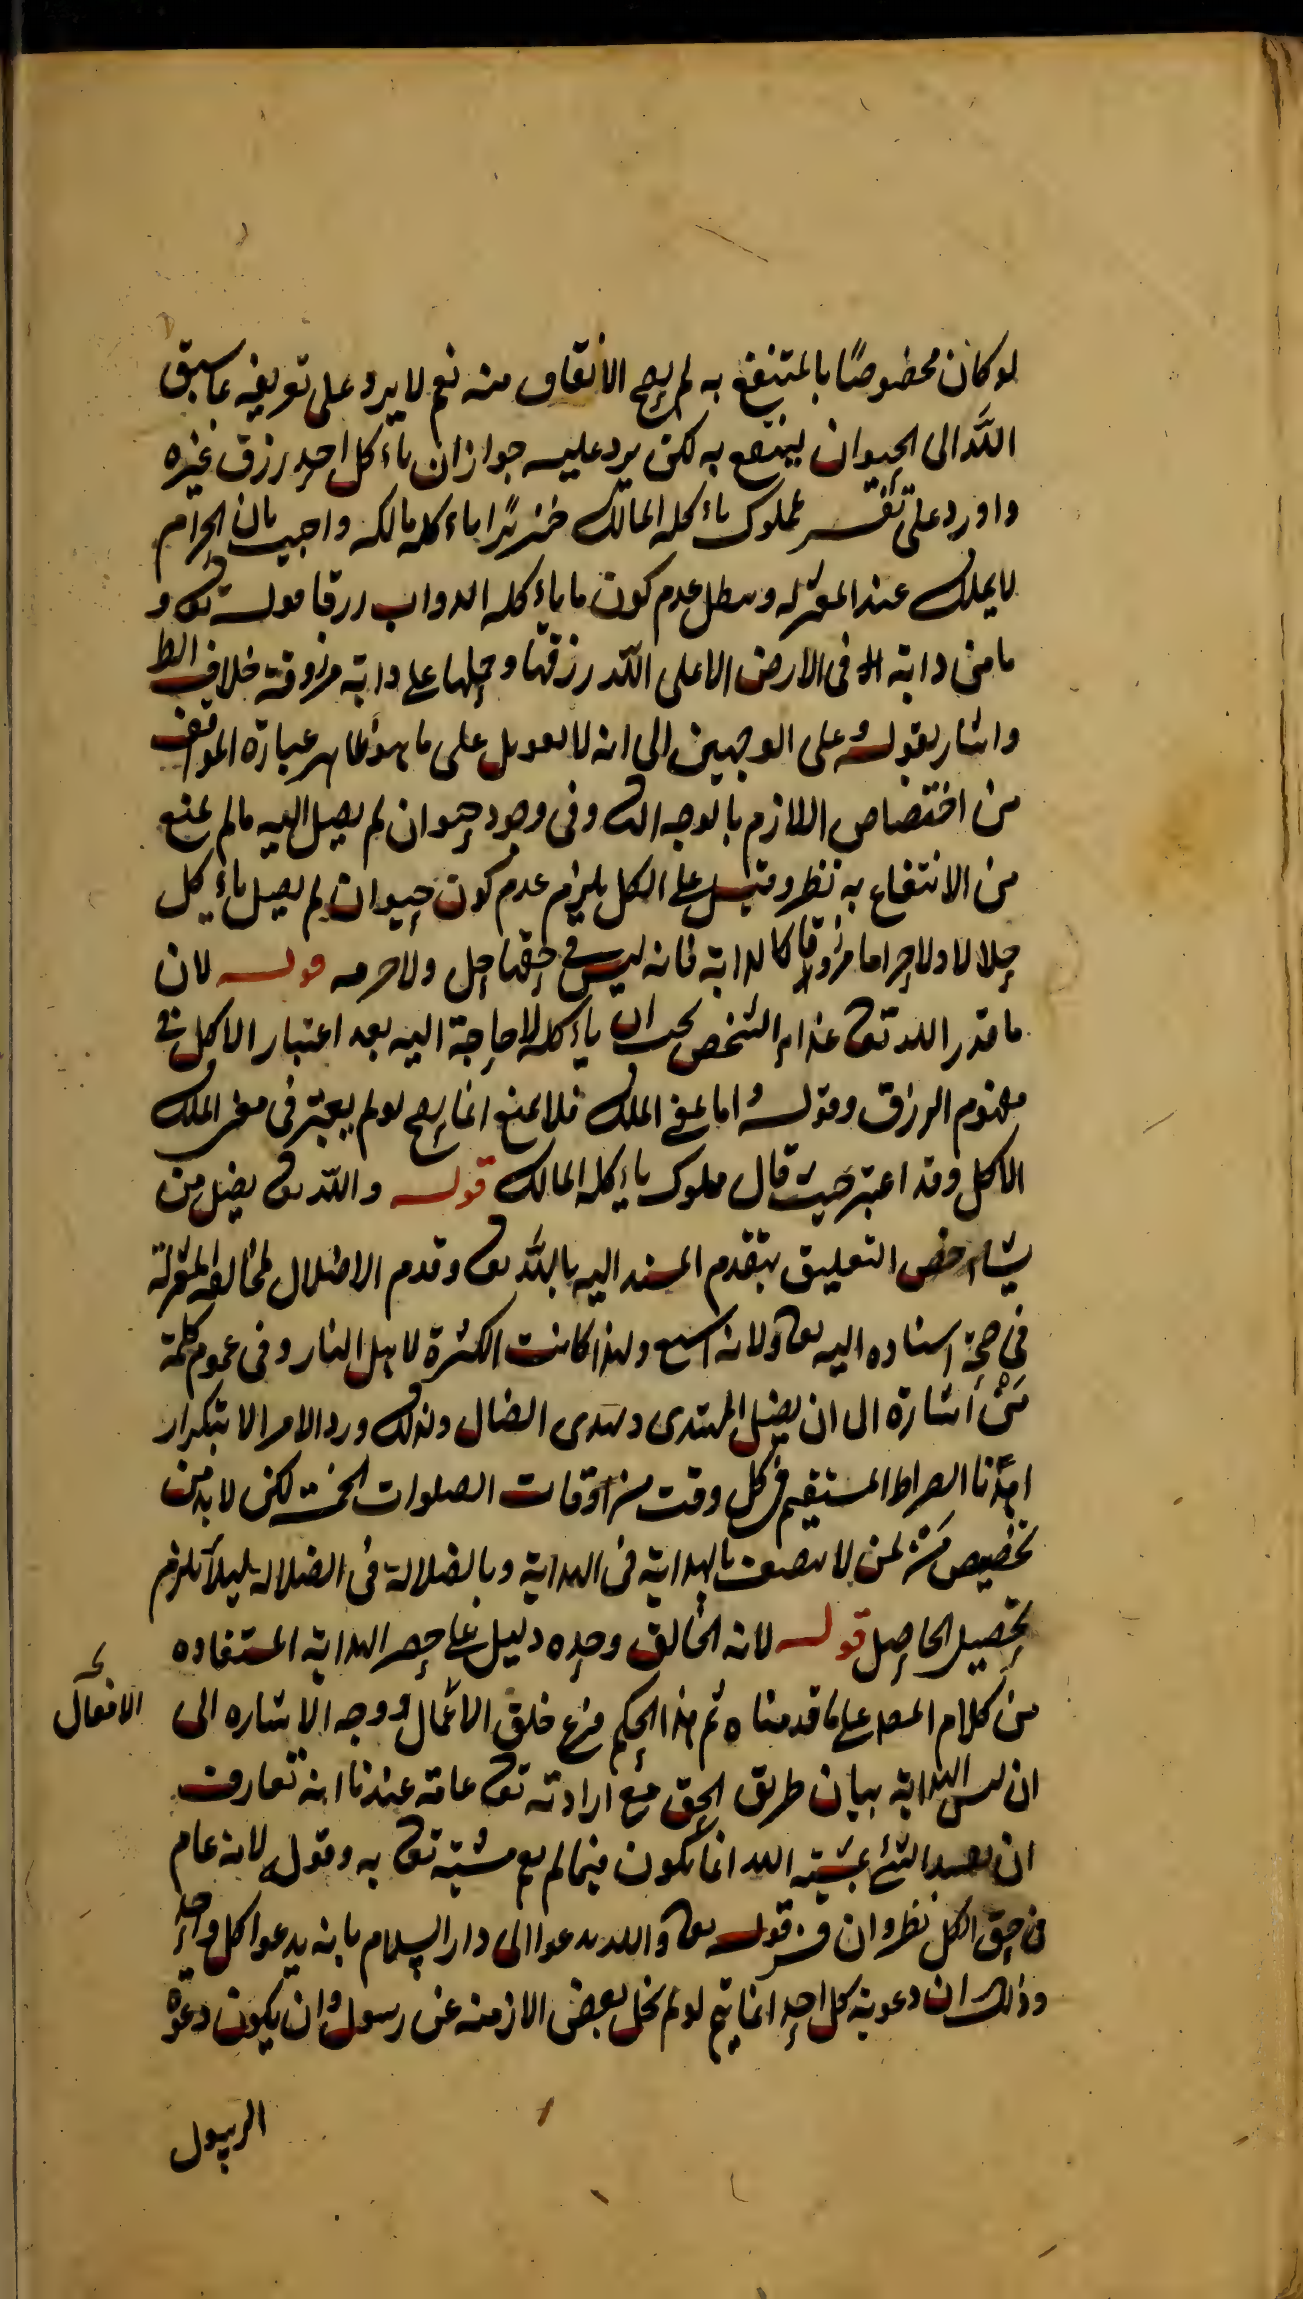 لو كان مخصوصًا بالمنتفع به لم يصح الانفاق منه نعم لا يرد على تعريفه بما سبق
الله الى الحيوان لينتفع به لكن يرد عليه جواز ان يأكل احد رزق غيره
واورد على تفسير بمملوك يأكله المالك خنزيرًا يأكله مالكه واجيب بان الحرام
لا يملك عند المعتزلة ويبطل عدم كون ما يأكله الدواب رزقا قوله تعالى و
ما من دابة الا فى الارض الا على الله رزقها وحملها على دابة مرزوقة خلاف الظ
واشار بقوله وعلى الوجهين الى انه لا تعويل على ما هو ظاهر عبارة المواقف
من اختصاص اللازم بالوجه الثانى وفى وجود حيوان لم يصل اليه ما لم يمنع
من الانتفاع به نظر وقيل على الكل يلزم عدم كون حيوان لم يصل يأكل
حلالا ولا حراما مرزوقا كالدابة فانه ليس فى حقها حل ولا حرمه قوله لان
ما قدر الله تعالى غذاء الشخص يجب ان يأكله لا حاجة اليه بعد اعتبار الاكل فى
مفهوم الرزق وقوله واما بمعنى الملك فلا يمنع انما يصح لو لم يعتبر فى معنى الملك
الاكل وقد اعتبر حيث قال مملوك يأكله المالك قوله والله تعالى يضل من
يشاء خص التعليق بتقدم المسند اليه بالله تعالى وقدم الاضلال لمخالفة المعتزلة
فى صحة اسناده اليه تعالى ولانه اسبع ولهذا كانت الكثرة لاهل النار وفى عموم كلمة
مَنْ اشارة الى ان يضل المهتدى ويهدى الضال ولذلك ورد الامر الا بتكرار
اهدنا الصراط المستقيم فى كل وقت من اوقات الصلوات الخمسة لكن لا بد من
تخصيص مَنْ لمن لا يتصف بالهداية فى الهداية وبالضلالة فى الضلالة ليلا يلزم
تحصيل الحاصل قوله لانه الخالق وحده دليل على حصر الهداية المستفاده
من كلام المص على ما قدمناه ثم هذا الحكم فرع خلق الاعمال ووجه الاشاره الى
الافعال
ان ليس الهداية بيان طريق الحق مع ارادته تعالى عامة عندنا انه تعارف
ان تقييد الشئ بمشيته الله انما يكون فيما لم يعم مشيته تعالى به وقوله لانه عام
فى حق الكل نظر وان فسر قوله تعالى والله يدعوا الى دار السلام بانه يدعوا كل واحد
وذلك ان دعوته كل احد انما يتم لو لم يخل بعض الازمنه عن رسول وان يكون دعوة
الرسول